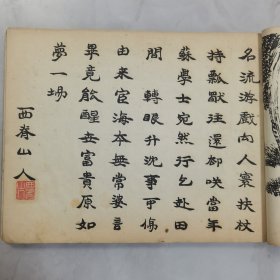 名流游戲向人寰扶杖
持瓢猒往還却咲當年
蘇學士宛然行乞赴田
間轉眼升沈事可傷
由来宦海本無常婆言
畢竟能醒世富貴原如
夢一場
西脊山人